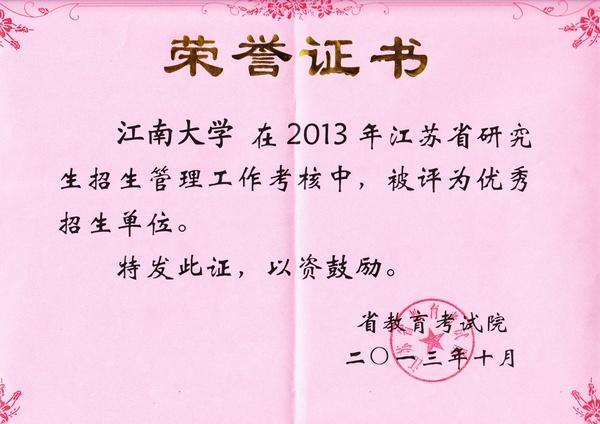 荣誉证书
江南大学 在2013年江苏省研究
生招生管理工作考核中，被评为优秀
招生单位。
特发此证，以资鼓励。
省教育考试院
二〇一三年十月